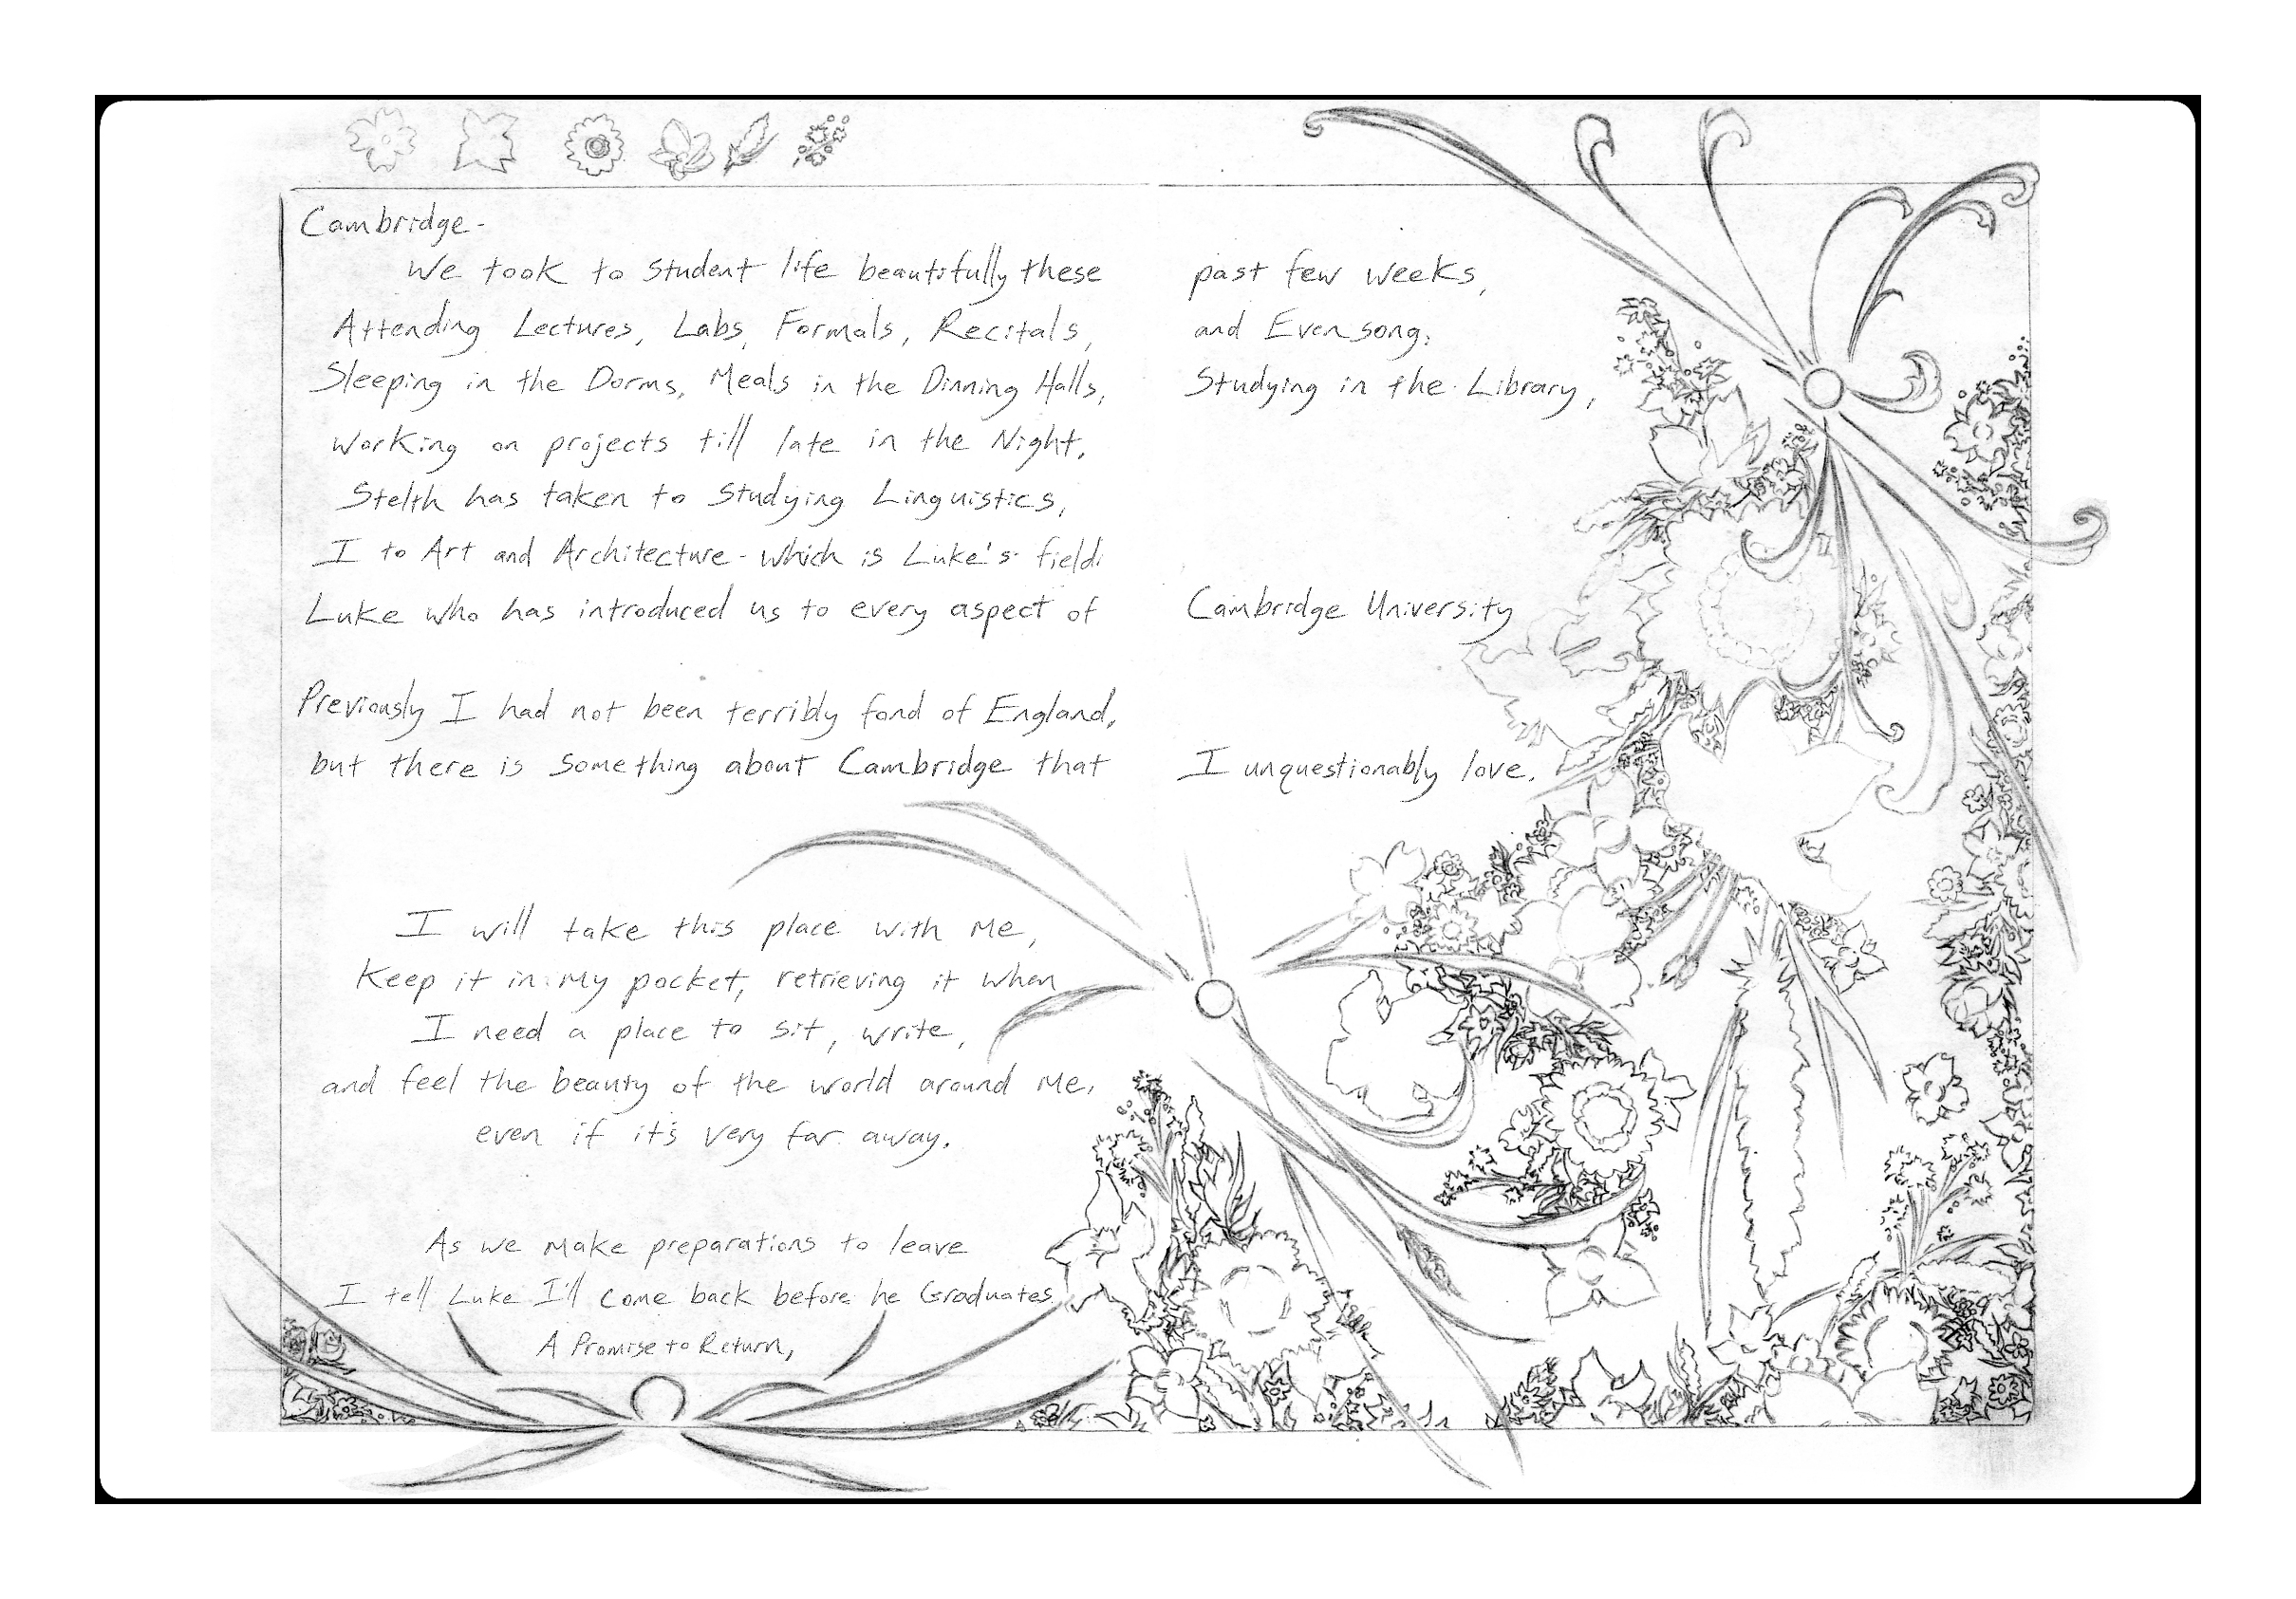 Cambridge-
We took to student life beautifully these past few weeks,
Attending Lectures, Labs, Formals, Recitals, and Evensong.
Sleeping in the Dorms, Meals in the Dinning Halls, Studying in the Library,
Working on projects till late in the Night.
Stelth has taken to Studying Linguistics,
I to Art and Architecture - which is Luke's field.
Luke who has introduced us to every aspect of Cambridge University
Previously I had not been terribly fond of England,
but there is Something about Cambridge that I unquestionably love.
I will take this place with Me,
Keep it in My pocket, retrieving it when
I need a place to sit, write,
and feel the beauty of the world around Me,
even if it's very far away.
As we Make preparations to leave
I tell Luke I'll come back before he Graduates
A Promise to Return,